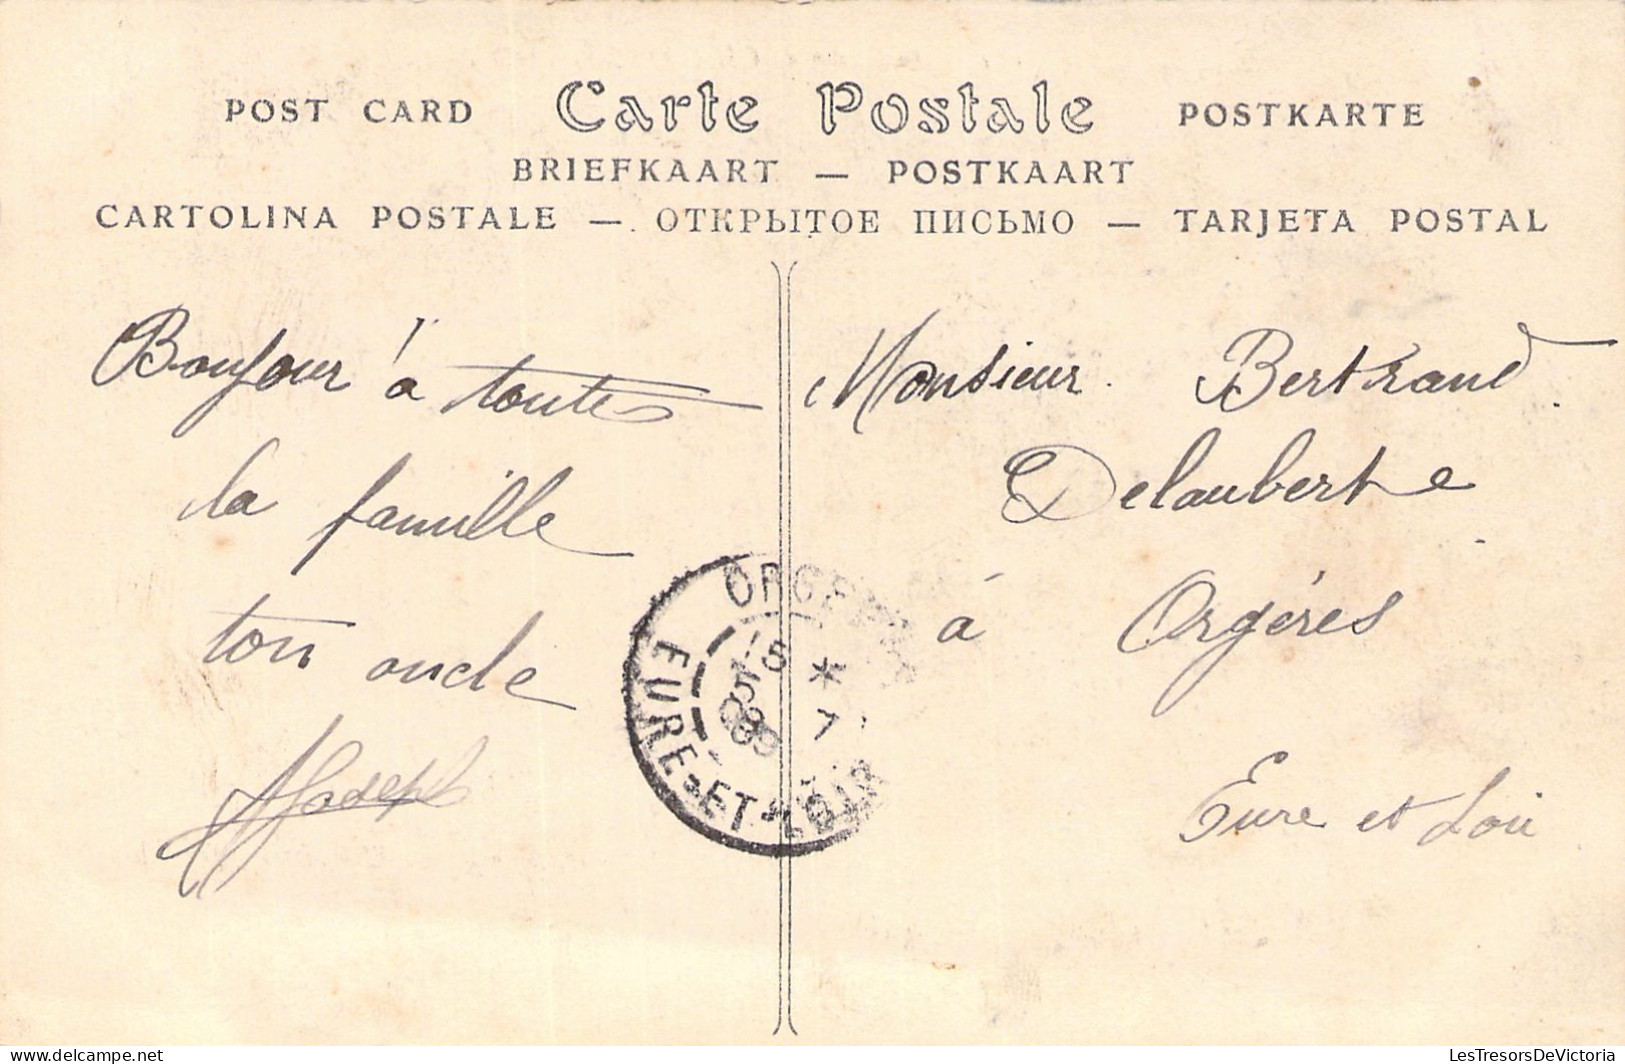 POST CARD Carte Postale POSTKARTE
BRIEFKAART — POSTKAART
CARTOLINA POSTALE — ОТКРЫТОЕ ПИСЬМО — TARJETA POSTAL
Bonjour à toutes
la famille
ton oncle
Joseph
Monsieur Bertrand
Delauberte
à Orgérés
Eure et Loir
ORGERES
EURE-ET-LOIR
LesTresorsDeVictoria